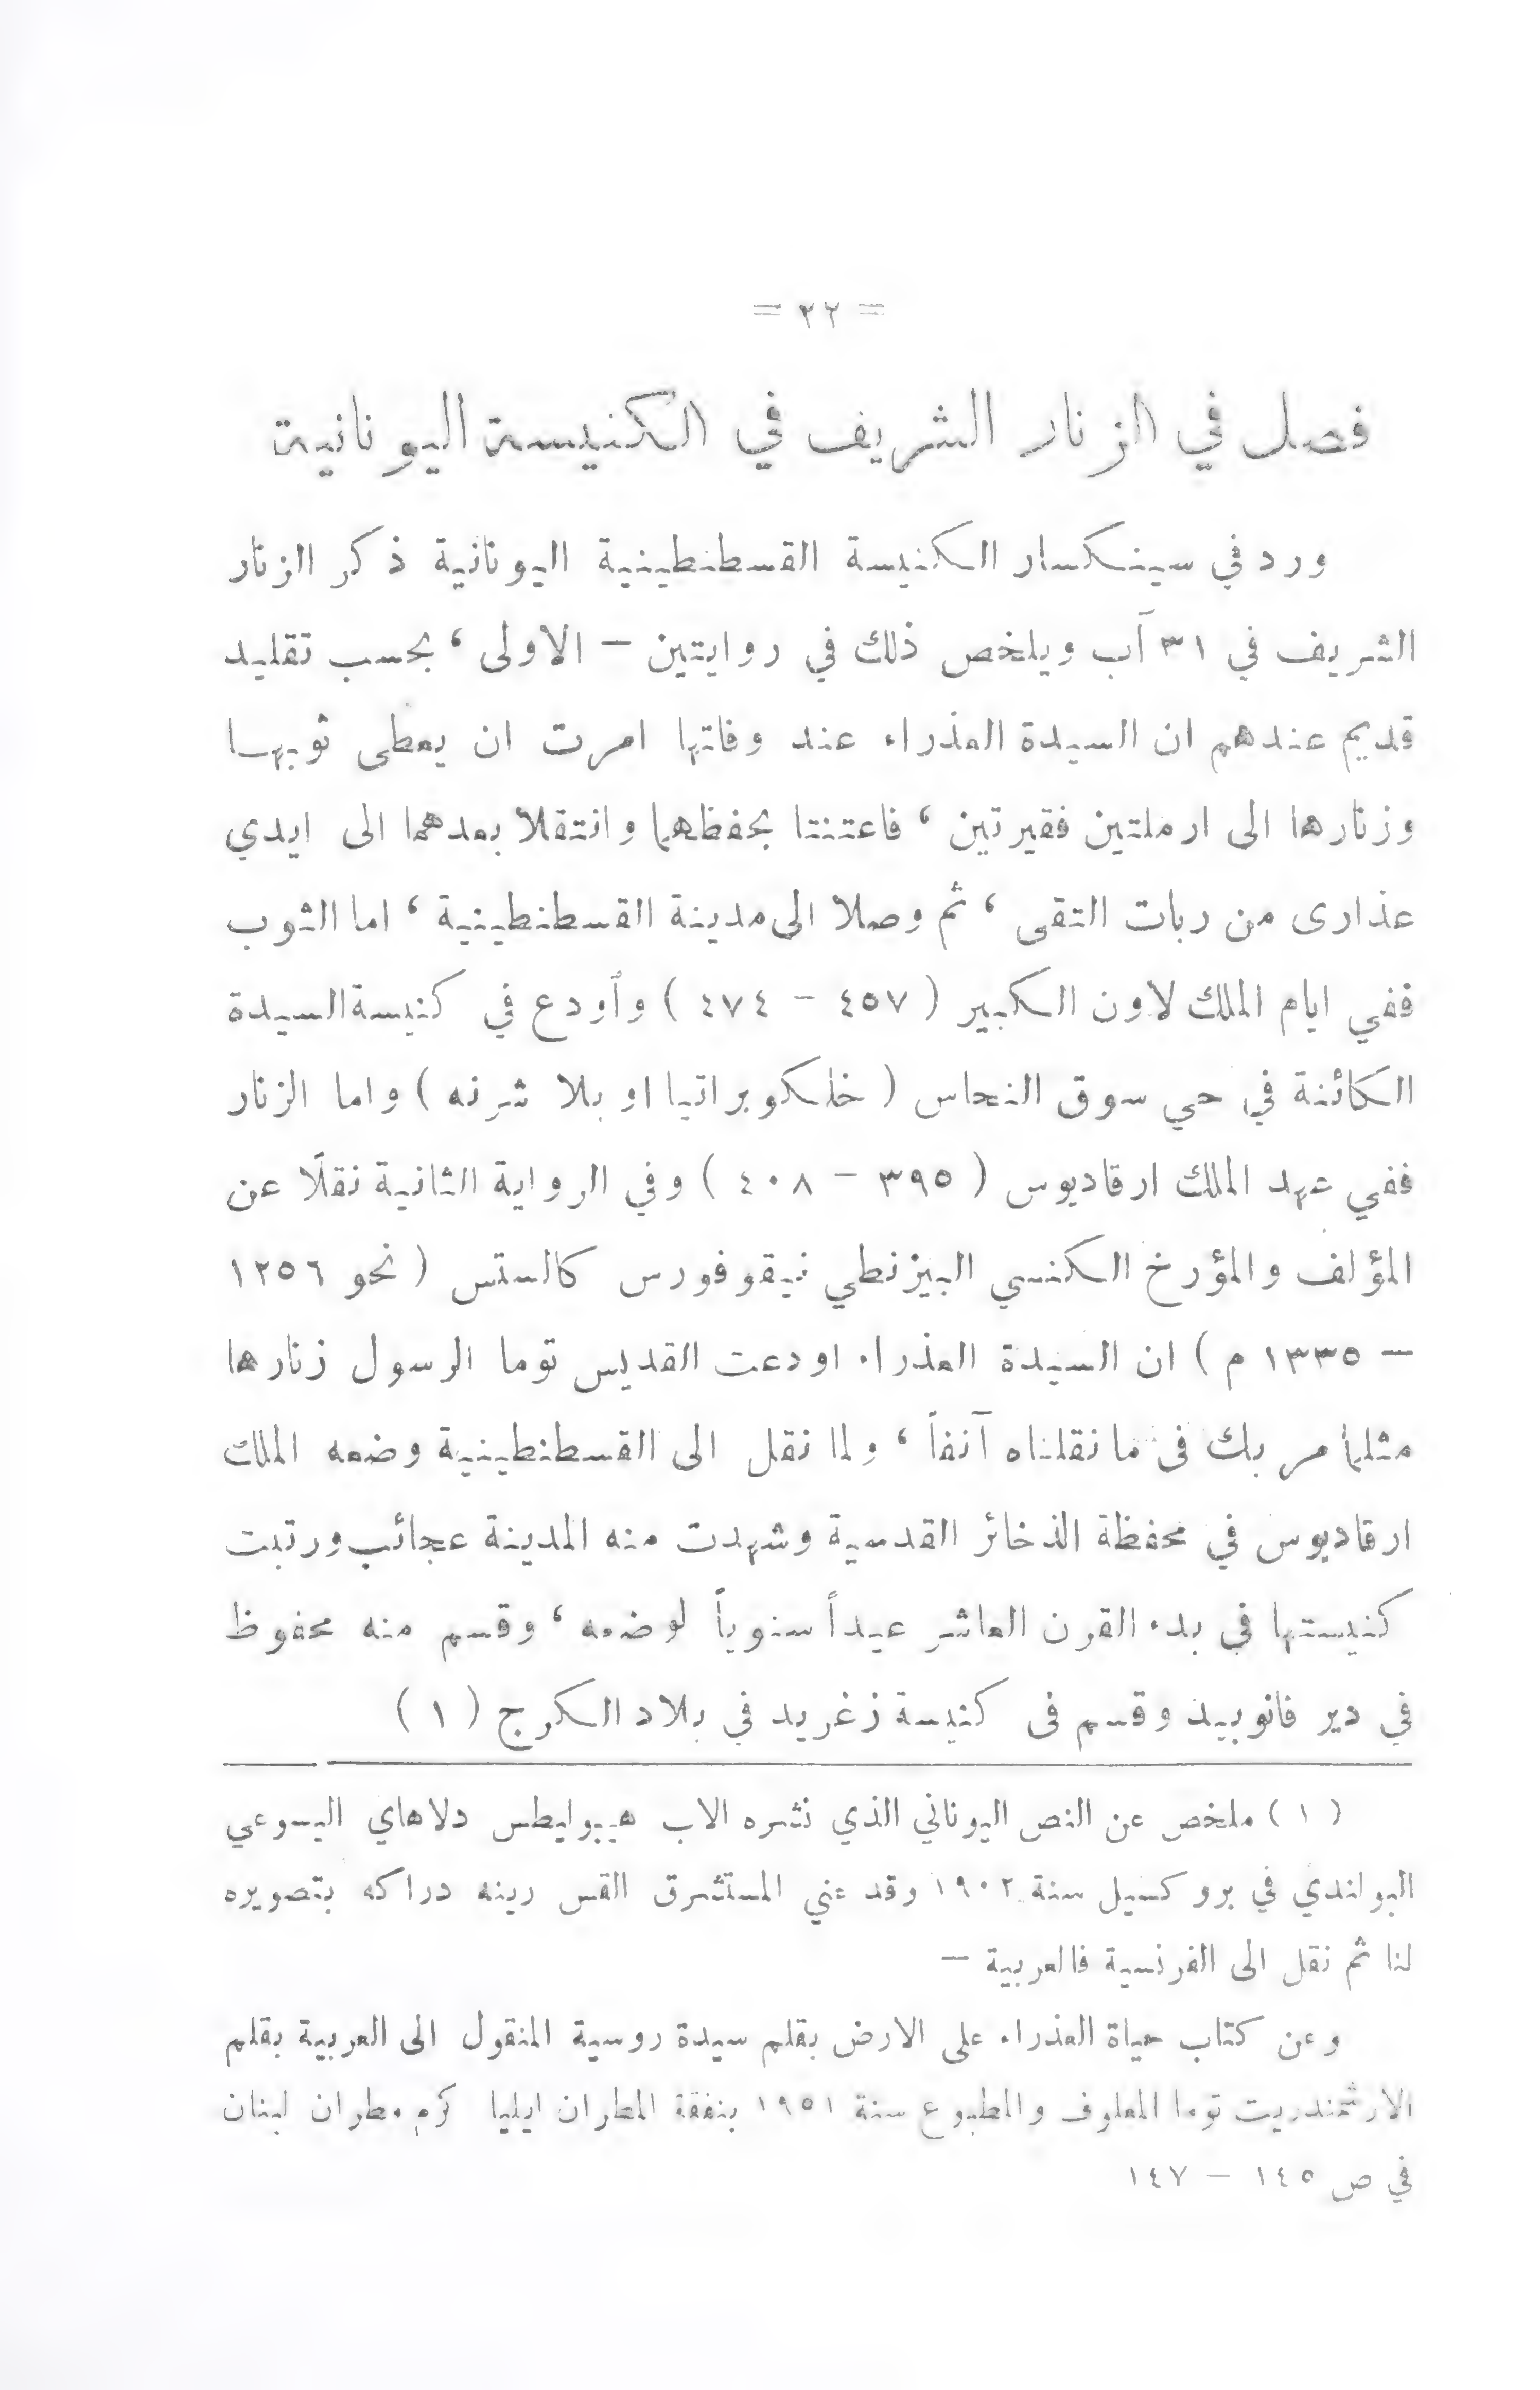 = ٢٢ =
فصل في الزنار الشريف في الكنيسة اليونانية
ورد في سينكسار الكنيسة القسطنطينية اليونانية ذكر الزنار
الشريف في ٣١ آب ويلخص ذلك في روايتين – الاولى ، بحسب تقليد
قديم عندهم ان السيدة العذراء عند وفاتها امرت ان يعطى ثوبها
وزنارها الى ارملتين فقيرتين ، فاعتنتا بحفظهما وانتقلا بعدهما الى ايدي
عذارى من ربات التقى ، ثم وصلا الى مدينة القسطنطينية ، اما الثوب
ففي ايام الملك لاون الكبير ( ٤٥٧ – ٤٧٤ ) وأودع في كنيسة السيدة
الكائنة في حي سوق النحاس ( خلكوبراتيا او بلا شرنه ) واما الزنار
ففي عهد الملك ارقاديوس ( ٣٩٥ – ٤٠٨ ) وفي الرواية الثانية نقلًا عن
المؤلف والمؤرخ الكنسي البيزنطي نيقوفورس كالستس ( نحو ١٢٥٦
– ١٣٣٥ م ) ان السيدة العذراء اودعت القديس توما الرسول زنارها
مثلما مر بك فى ما نقلناه آنفاً ، ولما نقل الى القسطنطينية وضعه الملك
ارقاديوس في محفظة الذخائر القدسية وشهدت منه المدينة عجائب ورتبت
كنيستها في بدء القرن العاشر عيداً سنوياً لوضعه ، وقسم منه محفوظ
في دير فانوبيد وقسم فى كنيسة زغريد في بلاد الكرج ( ١ )
( ١ ) ملخص عن النص اليوناني الذي نشره الاب هيبوليطس دلاهاي اليسوعي
البولندي في بروكسيل سنة ١٩٠٢ وقد عني المستشرق القس رينه دراكه بتصويره
لنا ثم نقل الى الفرنسية فالعربية –
وعن كتاب حياة العذراء على الارض بقلم سيدة روسية المنقول الى العربية بقلم
الارشمندريت توما المعلوف والمطبوع سنة ١٩٥١ بنفقة المطران ايليا كرم مطران لبنان
في ص ١٤٥ – ١٤٧